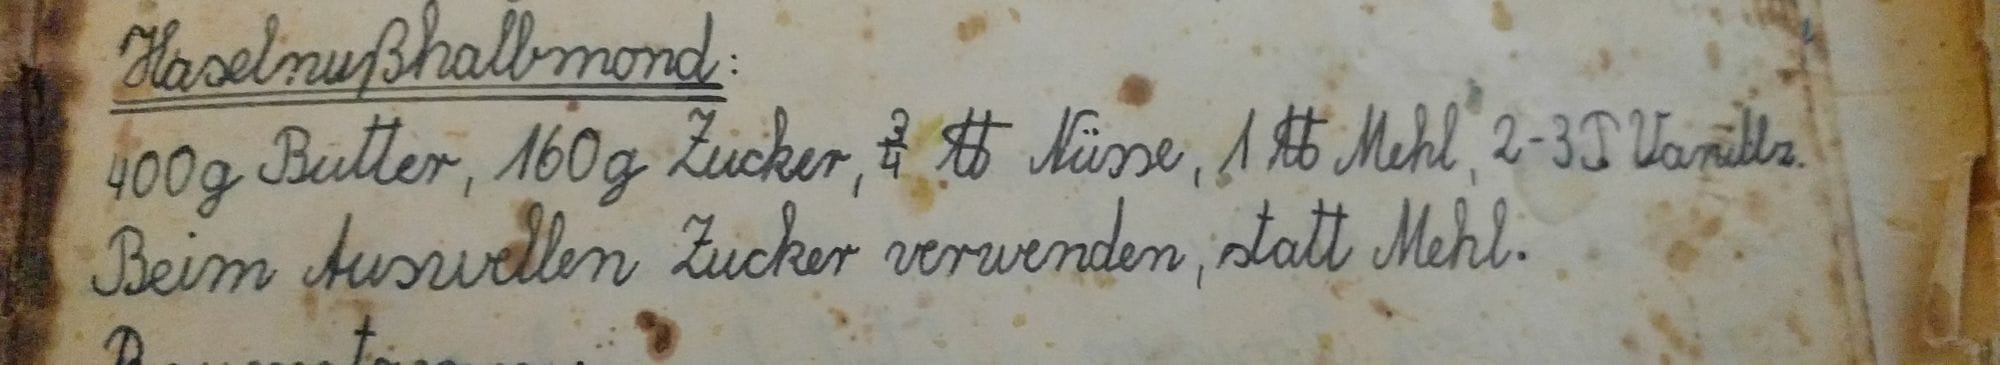 Haselnußhalbmond:
400g Butter, 160g Zucker, 3/4 ℔ Nüsse, 1 ℔ Mehl, 2-3 T Vanillz.
Beim Auswellen Zucker verwenden, statt Mehl.